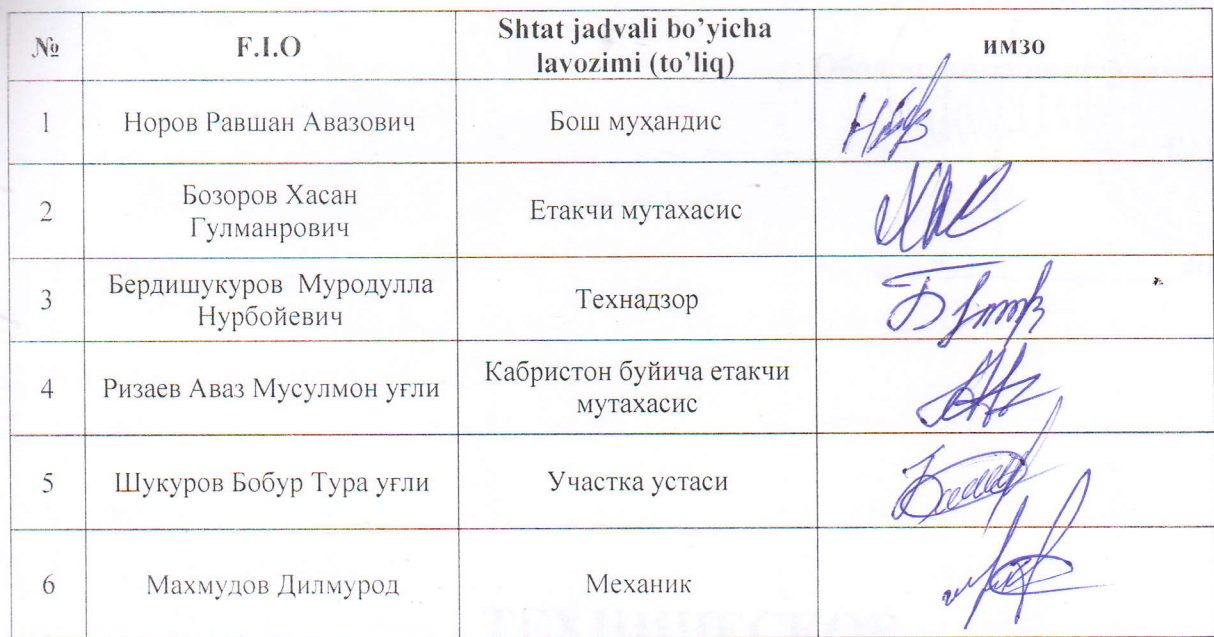 № F.I.O Shtat jadvali bo’yicha lavozimi (to’liq) имзо
1 Норов Равшан Авазович Бош муҳандис
2 Бозоров Хасан Гулманрович Етакчи мутахасис
3 Бердишукуров Муродулла Нурбойевич Технадзор
4 Ризаев Аваз Мусулмон уғли Кабристон буйича етакчи мутахасис
5 Шукуров Бобур Тура уғли Участка устаси
6 Махмудов Дилмурод Механик
ТЕХНИЧЕСКОЕ